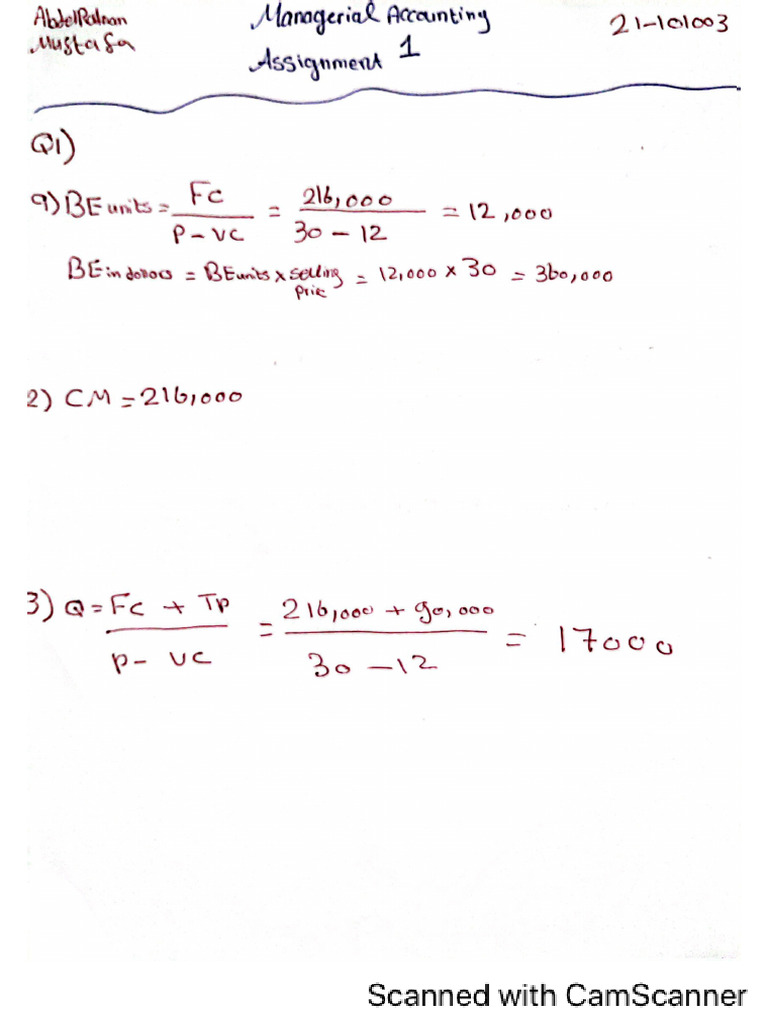 AbdelRahman Managerial Accounting 21-101003
Mustafa Assignment 1
Q1)
9) BE units = Fc / P - vc = 216,000 / 30 - 12 = 12,000
BE in dollars = BE units x selling price = 12,000 x 30 = 360,000
2) CM = 216,000
3) Q = Fc + Tp / p - vc = 216,000 + 90,000 / 30 - 12 = 17000
Scanned with CamScanner